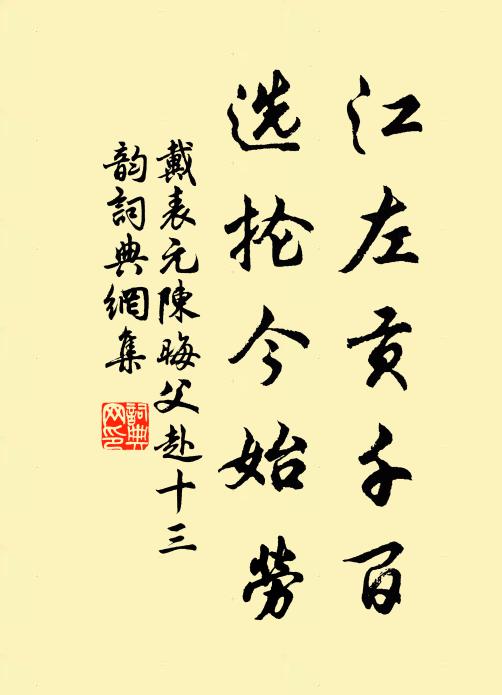 江左贡千百
选抡今始勞
戴表元陳晦父赴十三
韵詞典網集
詞典
网印